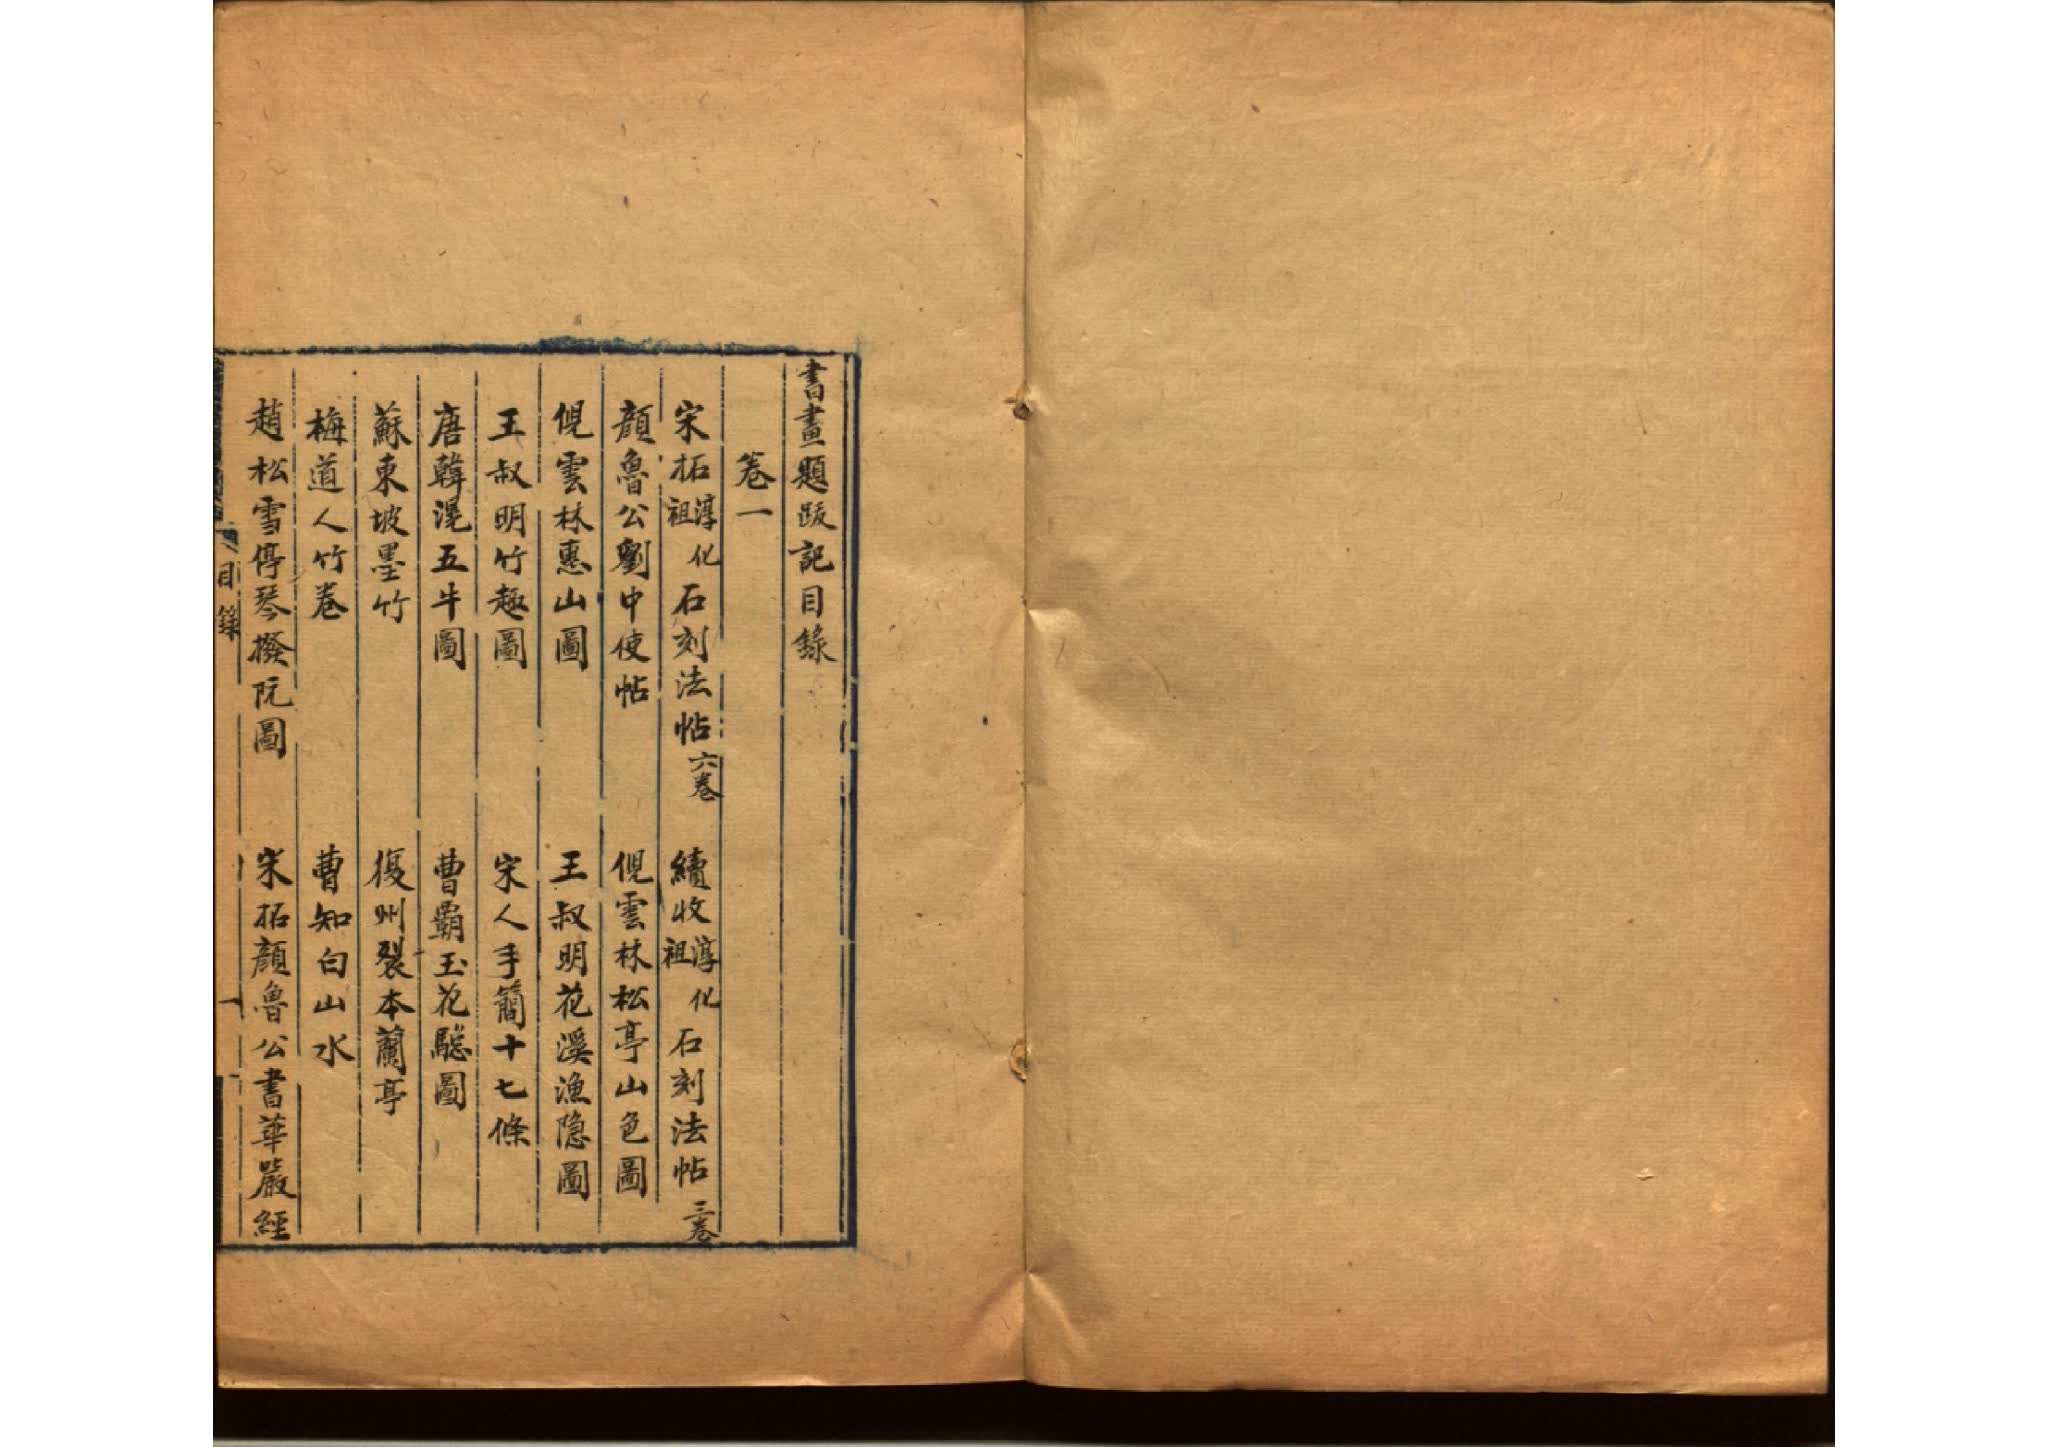 書畫題跋記目錄
卷一
宋拓淳化祖石刻法帖六卷　續收淳化祖石刻法帖三卷
顏魯公劉中使帖　倪雲林松亭山色圖
倪雲林惠山圖　王叔明花溪漁隐圖
王叔明竹趣圖　宋人手簡十七條
唐韓滉五牛圖　曹霸玉花驄圖
蘇東坡墨竹　復州裂本蘭亭
梅道人竹卷　曹知白山水
趙松雪停琴撥阮圖　宋拓顏魯公書華嚴經
目錄　一